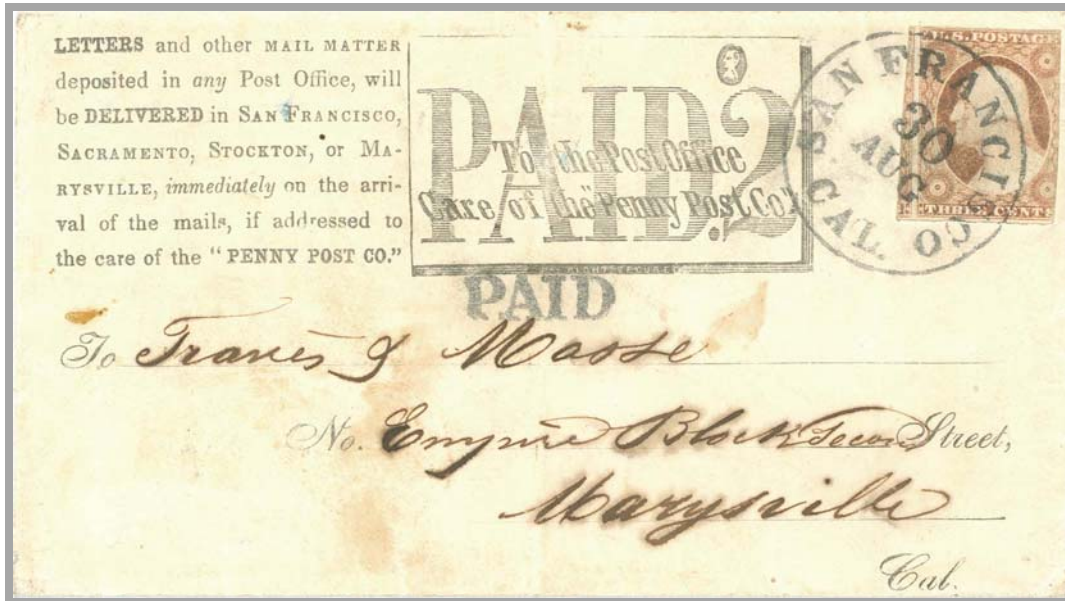 LETTERS and other MAIL MATTER
deposited in any Post Office, will
be DELIVERED in SAN FRANCISCO,
SACRAMENTO, STOCKTON, or MA-
RYSVILLE, immediately on the arri-
val of the mails, if addressed to
the care of the " PENNY POST CO."
PAID. 2
To the Post Office
Care of the "Penny Post Co."
PAID
SAN FRANCISCO
30
AUG
CAL.
U.S. POSTAGE
THREE CENTS
To Traves & Masse
No. Empire Block Secon Street,
Marysville
Cal.